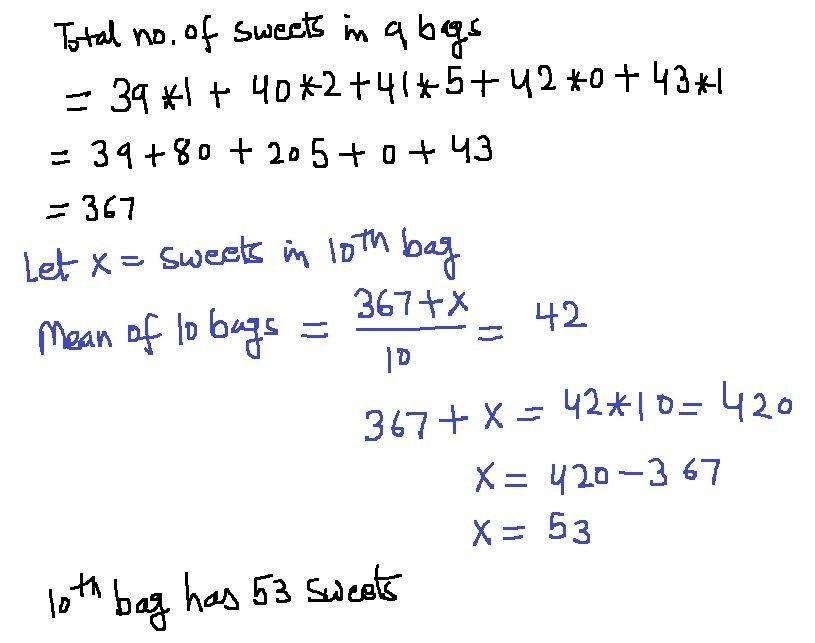 Total no. of sweets in 9 bags
= 39*1 + 40*2+41*5+42*0+43*1
= 39+80 + 205+0+43
= 367
Let x = sweets in 10th bag
Mean of 10 bags = (367+x)/10 = 42
367+x = 42*10= 420
x= 420-367
x= 53
10th bag has 53 sweets